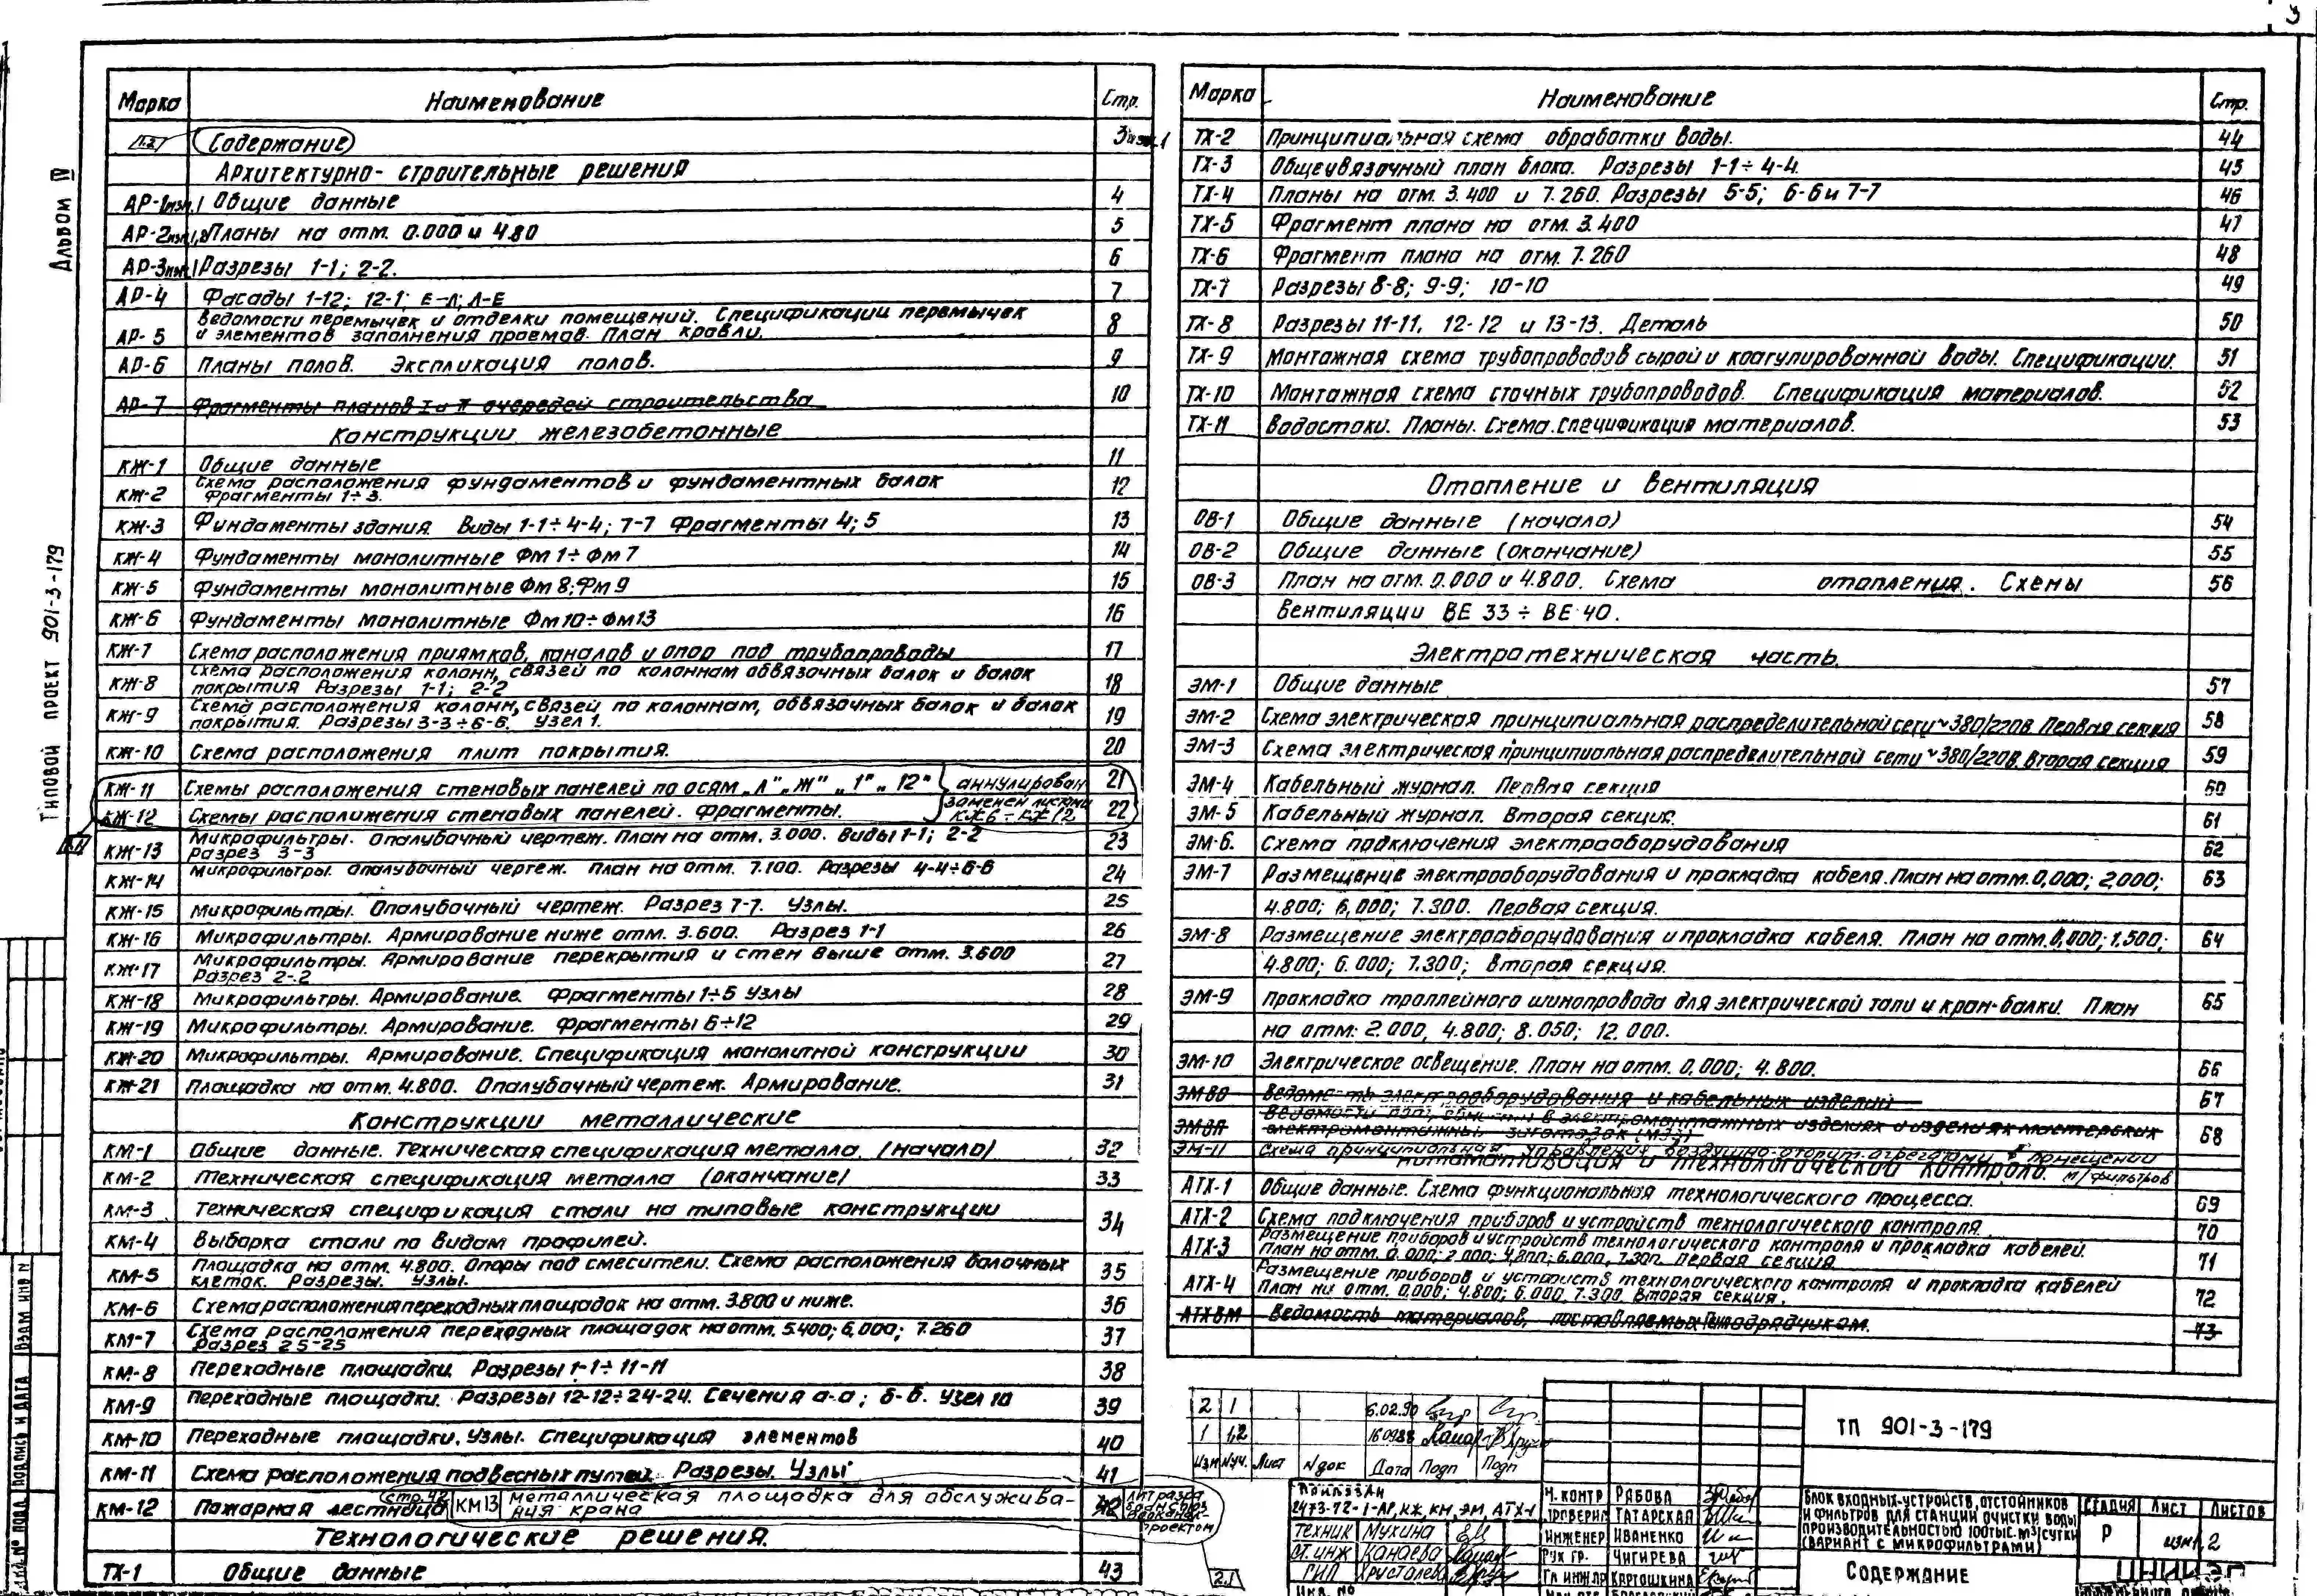 3
Альбом IV
Типовой проект 901-3-179
Марка Наименование Стр.
Содержание 3 изм.1
Архитектурно-строительные решения
АР-1 изм.1 Общие данные 4
АР-2 изм.1,2 Планы на отм. 0.000 и 4.80 5
АР-3 изм.1 Разрезы 1-1; 2-2. 6
АР-4 Фасады 1-12; 12-1; Е-Л; Л-Е 7
АР-5 Ведомости перемычек и отделки помещений. Спецификации перемычек 8
и элементов заполнения проемов. План кровли.
АР-6 Планы полов. Экспликация полов. 9
АР-7 Фрагменты планов I и II очередей строительства 10
Конструкции железобетонные
КЖ-1 Общие данные 11
КЖ-2 Схема расположения фундаментов и фундаментных балок 12
Фрагменты 1÷3.
КЖ-3 Фундаменты здания. Виды 1-1÷4-4; 7-7 Фрагменты 4; 5 13
КЖ-4 Фундаменты монолитные Фм 1÷Фм 7 14
КЖ-5 Фундаменты монолитные Фм 8; Фм 9 15
КЖ-6 Фундаменты монолитные Фм 10÷Фм 13 16
КЖ-7 Схема расположения приямков, каналов и опор под трубопроводы 17
КЖ-8 Схема расположения колонн, связей по колоннам обвязочных балок и балок 18
покрытия Разрезы 1-1; 2-2
КЖ-9 Схема расположения колонн, связей по колоннам, обвязочных балок и балок 19
покрытия. Разрезы 3-3÷6-6. Узел 1.
КЖ-10 Схема расположения плит покрытия. 20
КЖ-11 Схемы расположения стеновых панелей по осям „Л" „Ж" „1" „12" аннулирован 21
КЖ-12 Схемы расположения стеновых панелей. Фрагменты. заменен листами 22
КЖ-13 Микрофильтры. Опалубочный чертеж. План на отм. 3.000. Виды 1-1; 2-2 23
Разрез 3-3
КЖ-14 Микрофильтры. Опалубочный чертеж. План на отм. 7.100. Разрезы 4-4÷6-6 24
КЖ-15 Микрофильтры. Опалубочный чертеж. Разрез 7-7. Узлы. 25
КЖ-16 Микрофильтры. Армирование ниже отм. 3.600. Разрез 1-1 26
КЖ-17 Микрофильтры. Армирование перекрытия и стен выше отм. 3.600 27
Разрез 2-2
КЖ-18 Микрофильтры. Армирование. Фрагменты 1÷5 Узлы 28
КЖ-19 Микрофильтры. Армирование. Фрагменты 6÷12 29
КЖ-20 Микрофильтры. Армирование. Спецификация монолитной конструкции 30
КЖ-21 Площадка на отм. 4.800. Опалубочный чертеж. Армирование. 31
Конструкции металлические
КМ-1 Общие данные. Техническая спецификация металла. (начало) 32
КМ-2 Техническая спецификация металла (окончание) 33
КМ-3 Техническая спецификация стали на типовые конструкции 34
КМ-4 Выборка стали по видам профилей.
КМ-5 Площадка на отм. 4.800. Опоры под смесители. Схема расположения балочных 35
клеток. Разрезы. Узлы.
КМ-6 Схема расположения переходных площадок на отм. 3.800 и ниже. 36
КМ-7 Схема расположения переходных площадок на отм. 5.400; 6,000; 7.260 37
Разрез 25-25
КМ-8 Переходные площадки. Разрезы 1-1÷11-11 38
КМ-9 Переходные площадки. Разрезы 12-12÷24-24. Сечения а-а; б-б. Узел 10 39
КМ-10 Переходные площадки. Узлы. Спецификация элементов 40
КМ-11 Схема расположения подвесных путей. Разрезы. Узлы 41
КМ-12 Пожарная лестница стр.42 КМ13 металлическая площадка для обслужива- 42
ния крана
Технологические решения.
ТХ-1 Общие данные 43
Марка Наименование Стр.
ТХ-2 Принципиальная схема обработки воды. 44
ТХ-3 Общеувязочный план блока. Разрезы 1-1÷4-4. 45
ТХ-4 Планы на отм. 3.400 и 7.260. Разрезы 5-5; 6-6 и 7-7 46
ТХ-5 Фрагмент плана на отм. 3.400 47
ТХ-6 Фрагмент плана на отм. 7.260 48
ТХ-7 Разрезы 8-8; 9-9; 10-10 49
ТХ-8 Разрезы 11-11. 12-12 и 13-13. Деталь 50
ТХ-9 Монтажная схема трубопроводов сырой и коагулированной воды. Спецификации. 51
ТХ-10 Монтажная схема сточных трубопроводов. Спецификация материалов. 52
ТХ-11 Водостоки. Планы. Схема. Спецификация материалов. 53
Отопление и вентиляция
ОВ-1 Общие данные (начало) 54
ОВ-2 Общие данные (окончание) 55
ОВ-3 План на отм. 0.000 и 4.800. Схема отопления. Схемы 56
вентиляции ВЕ 33÷ВЕ 40.
Электротехническая часть.
ЭМ-1 Общие данные 57
ЭМ-2 Схема электрическая принципиальная распределительной сети ~380/220в. Первая секция 58
ЭМ-3 Схема электрическая принципиальная распределительной сети ~380/220в. Вторая секция 59
ЭМ-4 Кабельный журнал. Первая секция 60
ЭМ-5 Кабельный журнал. Вторая секция. 61
ЭМ-6. Схема подключения электрооборудования 62
ЭМ-7 Размещение электрооборудования и прокладка кабеля. План на отм. 0,000; 2,000; 63
4.800; 6,000; 7.300. Первая секция.
ЭМ-8 Размещение электрооборудования и прокладка кабеля. План на отм. 0,000; 1.500; 64
4.800; 6.000; 7.300; Вторая секция.
ЭМ-9 Прокладка троллейного шинопровода для электрической тали и кран-балки. План 65
на отм: 2.000, 4.800; 8.050; 12.000.
ЭМ-10 Электрическое освещение. План на отм. 0,000; 4.800. 66
ЭМВО Ведомость электрооборудования и кабельных изделий 67
ЭМВП в электромонтажных изделиях и изделиях мастерских 68
электромонтажных заготовок (МЭЗ)
ЭМ-11 Схема принципиальная управления воздушно-отопит. агрегатами в помещении
м/фильтров
Автоматизация и технологический контроль.
АТХ-1 Общие данные. Схема функциональная технологического процесса. 69
АТХ-2 Схема подключения приборов и устройств технологического контроля. 70
АТХ-3 Размещение приборов и устройств технологического контроля и прокладка кабелей. 71
План на отм. 0.000; 2.000; 4,800; 6.000, 7.300. Первая секция
АТХ-4 Размещение приборов и устройств технологического контроля и прокладка кабелей 72
План на отм. 0,000; 4.800; 6.000, 7.300 Вторая секция.
АТХВМ Ведомость материалов, поставляемых Генподрядчиком. 73
2 1 6.02.90
1 1,2 16.09.88
Изм Nуч. Лист N док Дата Подп Подп
Привязан
2473-72-1-АР, КЖ, КМ, ЭМ, АТХ-1
Техник Мухина
Ст. инж Канаева
ГИП Христалев
Инв. №
Н. контр Рябова
Проверил Татарская
Инженер Иваненко
Рук гр. Чигирева
Гл инж пр Картошкина
ТП 901-3-179
Блок входных устройств, отстойников
и фильтров для станции очистки воды
производительностью 100 тыс. м³/сутки
(вариант с микрофильтрами)
Стадия Лист Листов
Р изм 1,2
Содержание
Взам инв N
Подпись и дата